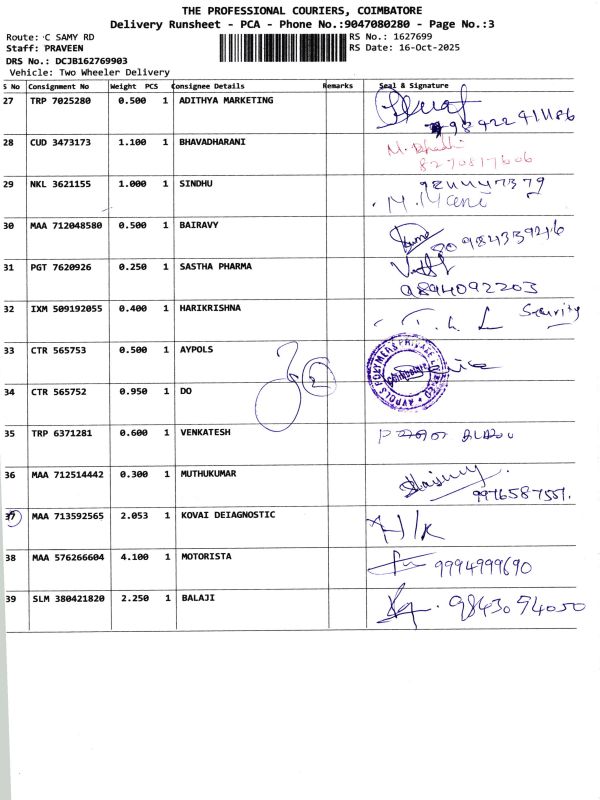 THE PROFESSIONAL COURIERS, COIMBATORE
Delivery Runsheet - PCA - Phone No.:9047080280 - Page No.:3
Route: C SAMY RD
RS No.: 1627699
Staff: PRAVEEN
RS Date: 16-Oct-2025
DRS No.: DCJB162769903
Vehicle: Two Wheeler Delivery
S No Consignment No Weight PCS Consignee Details Remarks Seal & Signature
27 TRP 7025280 0.500 1 ADITHYA MARKETING
9842241186
28 CUD 3473173 1.100 1 BHAVADHARANI
8270817606
29 NKL 3621155 1.000 1 SINDHU
M. Mani
30 MAA 712048580 0.500 1 BAIRAVY
80984339246
31 PGT 7620926 0.250 1 SASTHA PHARMA
9894092203
32 IXM 509192055 0.400 1 HARIKRISHNA
Security
33 CTR 565753 0.500 1 AYPOLS
AYPOLS POLYMERS PRIVATE LIMITED
Coimbatore
2
34 CTR 565752 0.950 1 DO
35 TRP 6371281 0.600 1 VENKATESH
36 MAA 712514442 0.300 1 MUTHUKUMAR
9976587551.
37 MAA 713592565 2.053 1 KOVAI DEIAGNOSTIC
38 MAA 576266604 4.100 1 MOTORISTA
9994999690
39 SLM 380421820 2.250 1 BALAJI
9843054050